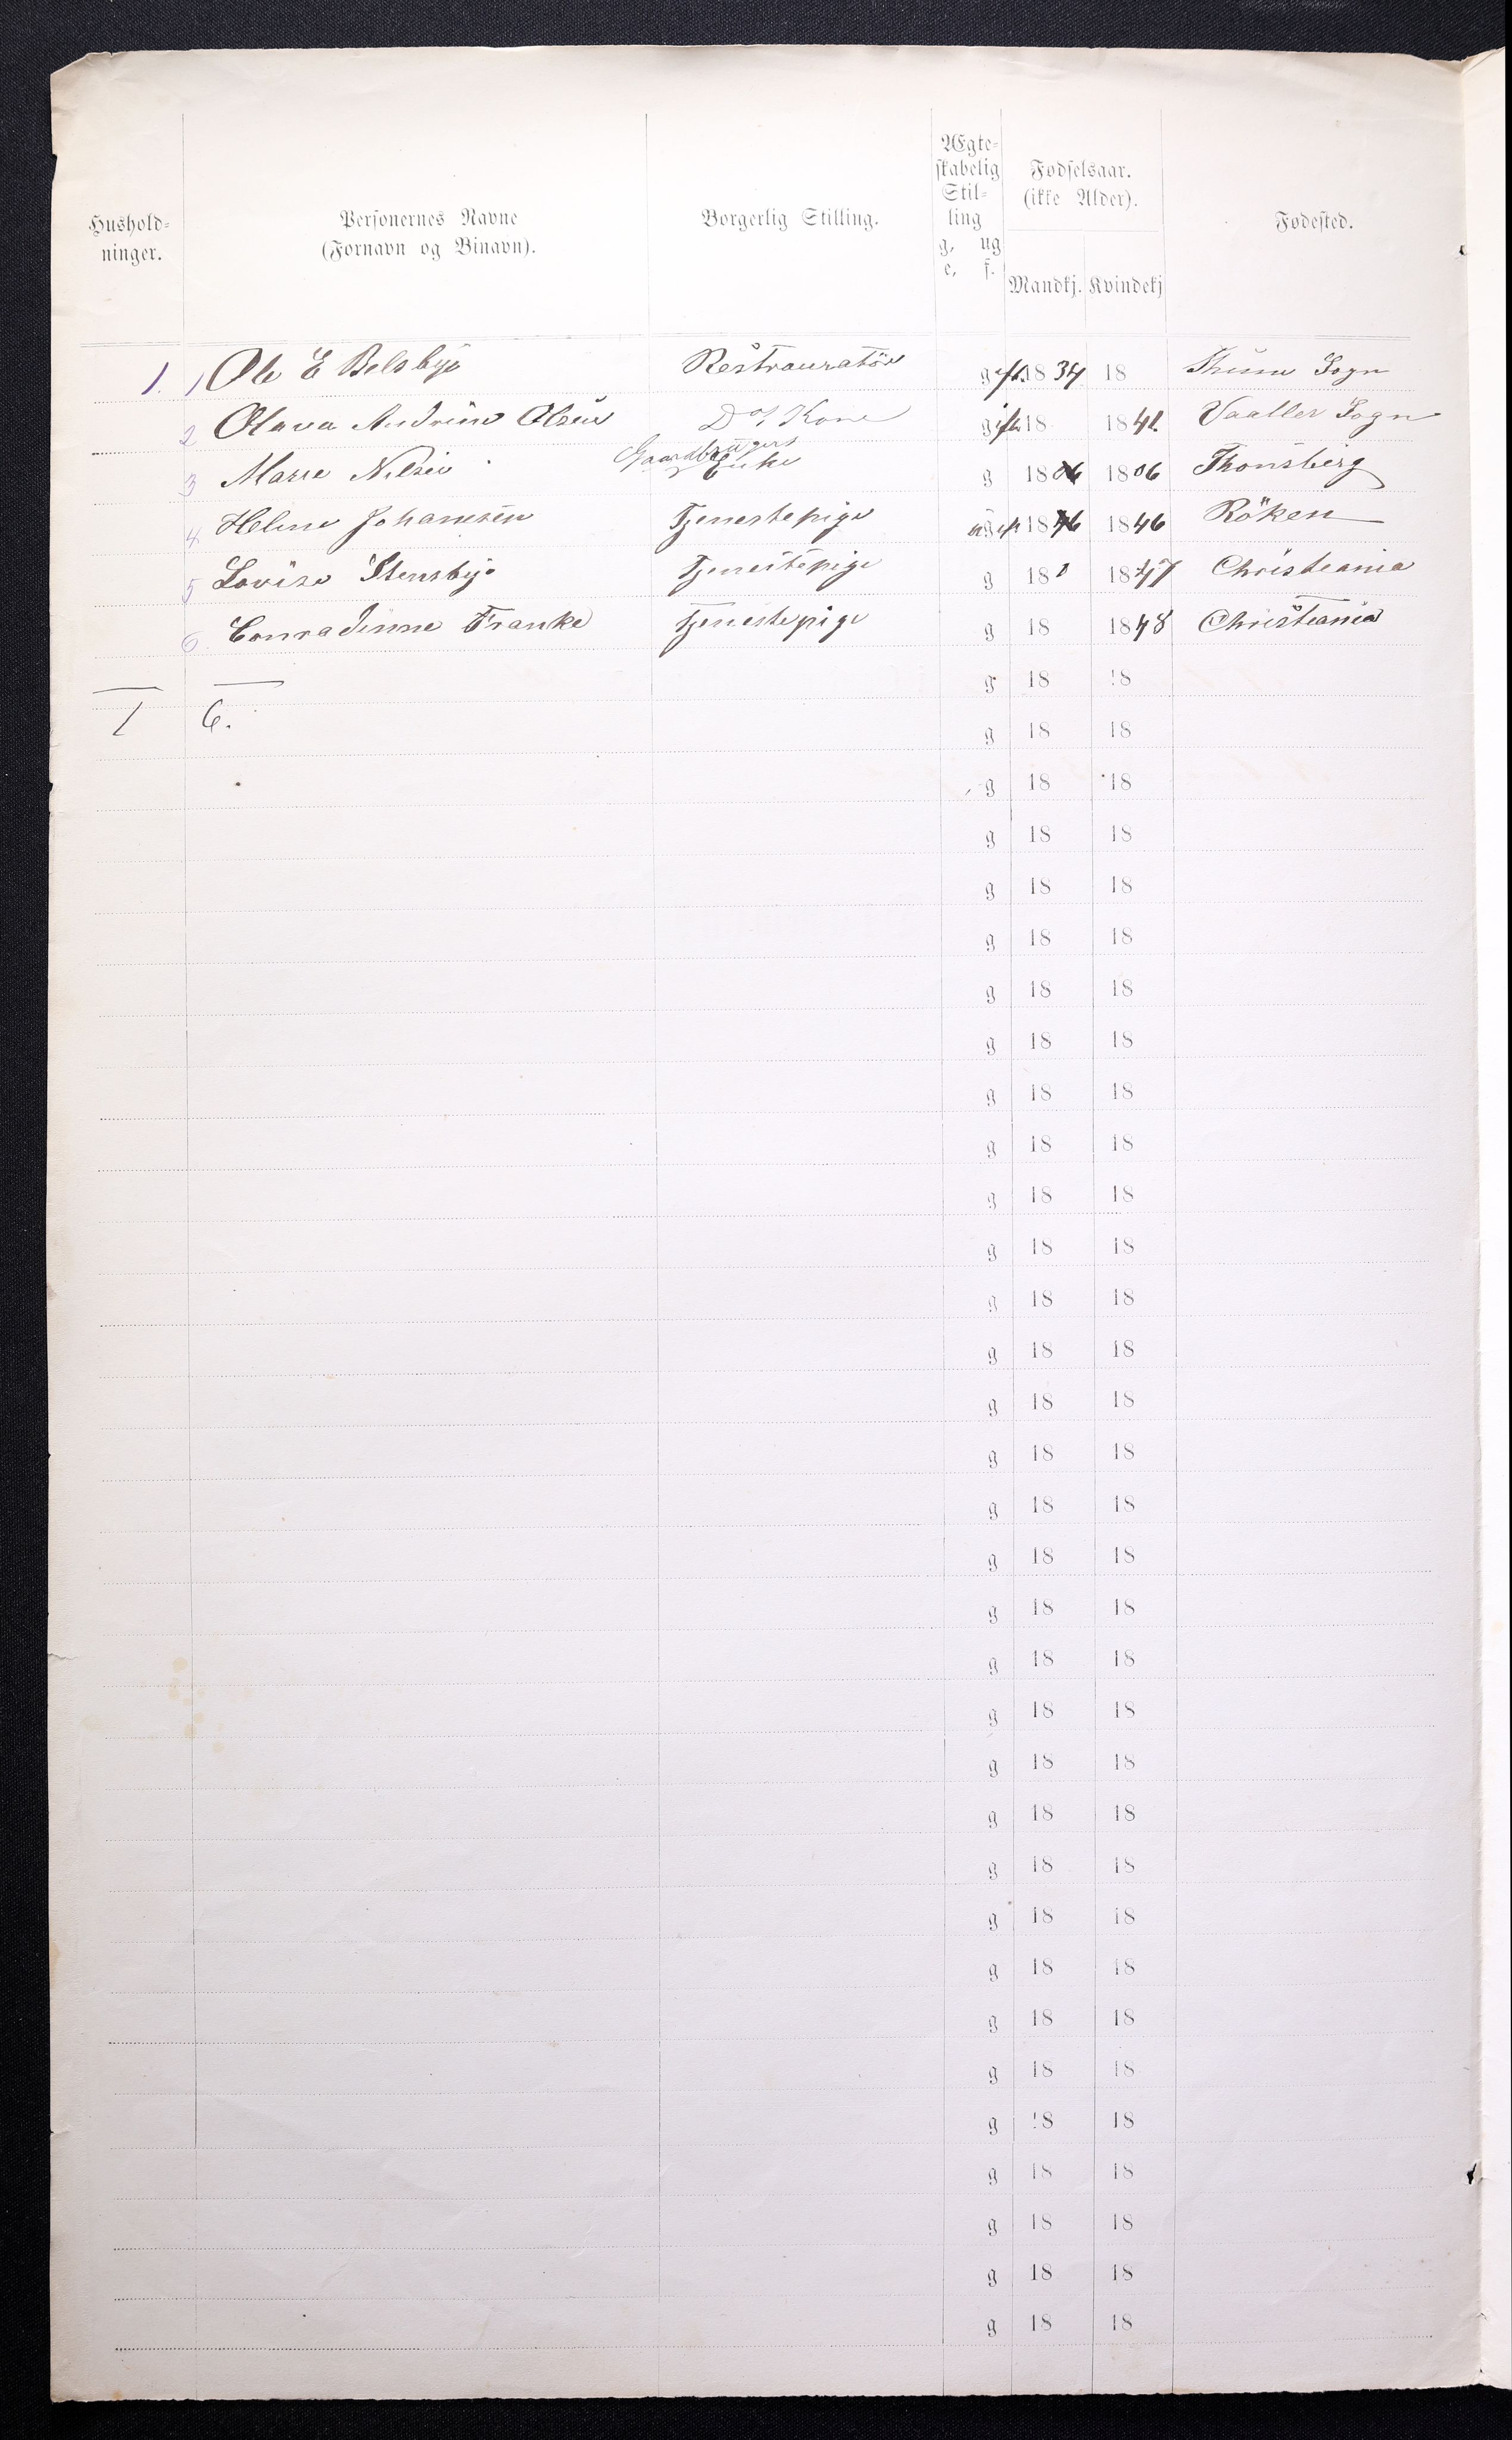 Hushold-
ninger.
Personernes Navne
(Fornavn og Binavn).
Borgerlig Stilling.
Ægte-
skabelig
Stil-
ling
g, ug
e, f.
Fødselsaar.
(ikke Alder).
Mandkj. Kvindekj
Fødested.
1. 1 Ole E Belsbye Restrauratör gift. 1834 18 Sogn
2 Olava Andrine Olsen Do Kone gift. 18 1841. Vaaller Sogn
Gaardbrugers
3 Marie Nilsen Enke g 18 1806 Thönsberg
4 Helene Johannsen Tjenestepige 18 1846 Röken
5 Lovise Stensbye Tjenestepige g 18 1847 Christeania
6. Conradinne Franke Tjenestepige g 18 1848 Christeania
g 18 18
1 6. g 18 18
g 18 18
g 18 18
g 18 18
g 18 18
g 18 18
g 18 18
g 18 18
g 18 18
g 18 18
g 18 18
g 18 18
g 18 18
g 18 18
g 18 18
g 18 18
g 18 18
g 18 18
g 18 18
g 18 18
g 18 18
g 18 18
g 18 18
g 18 18
g 18 18
g 18 18
g 18 18
g 18 18
g 18 18
g 18 18
g 18 18
g 18 18